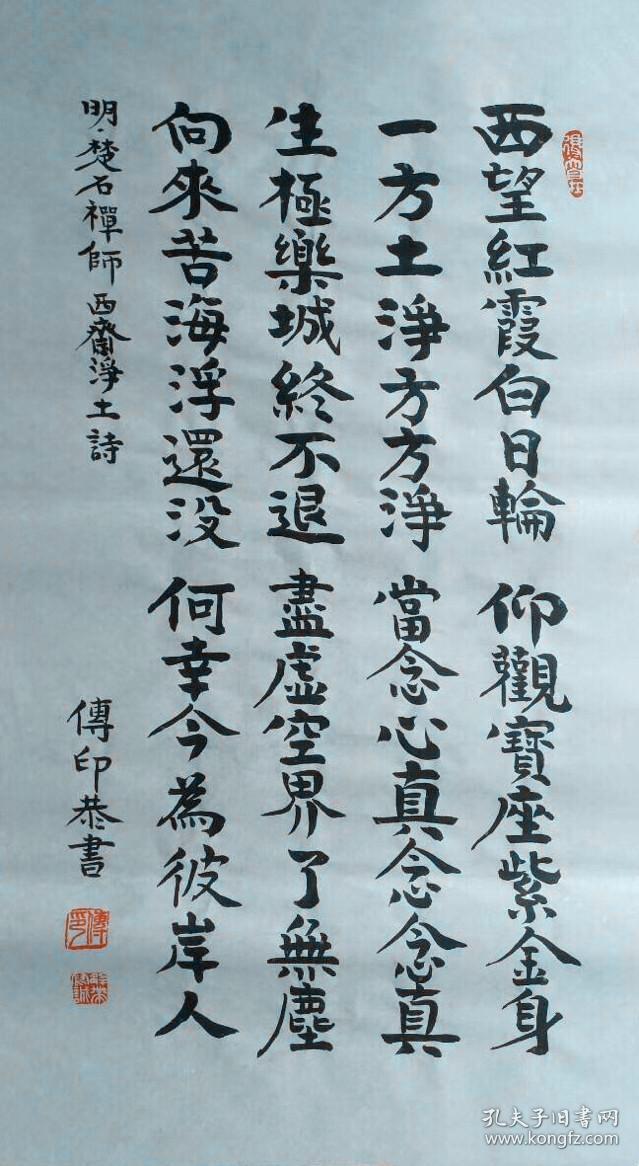 西望紅霞白日輪 仰觀寶座紫金身
一方土淨方方淨 當念心真念念真
生極樂城終不退 盡虛空界了無塵
向來苦海浮還没 何幸今為彼岸人
明·楚石禪師西齋淨土詩
傳印恭書
傳印
孔夫子旧書网
www.kongfz.com